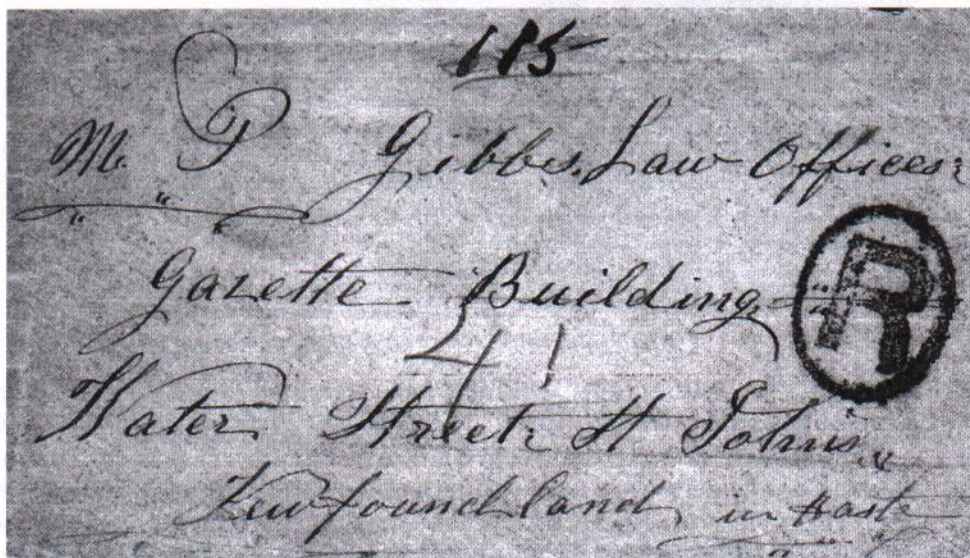 115
M. P Gibbs. Law Offices:
Gazette Building
R
41
Water Street: St Johns.
Newfoundland, in Haste